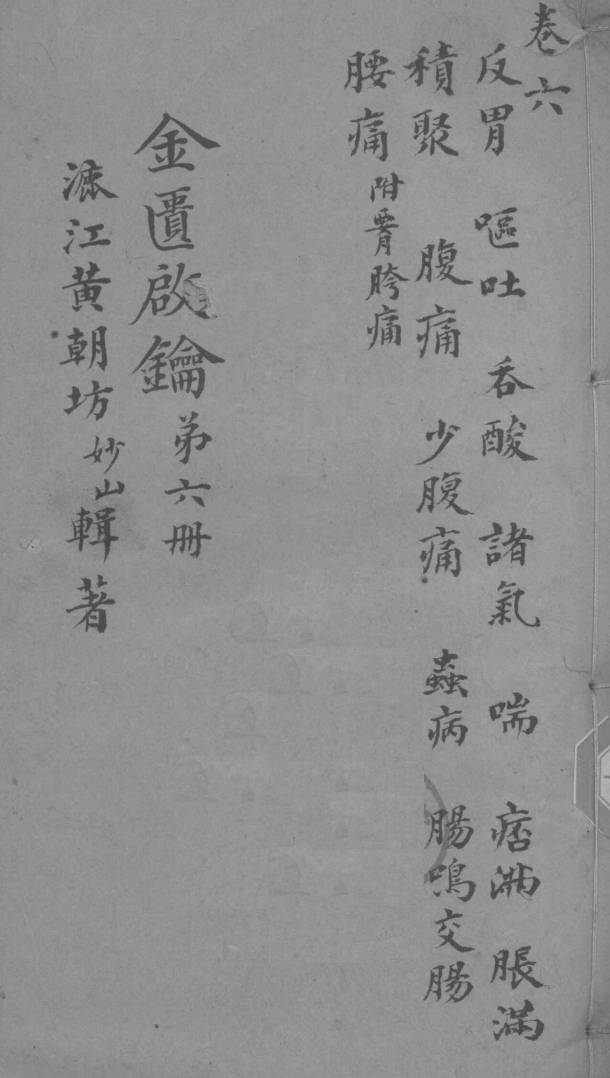 卷六
反胃 嘔吐 吞酸 諸氣 喘 痞滿 脹滿
積聚 腹痛 少腹痛 蟲病 腸鳴交腸
腰痛 附腰胯痛
金匱啟鑰 弟六冊
漉江黃朝坊妙山輯著